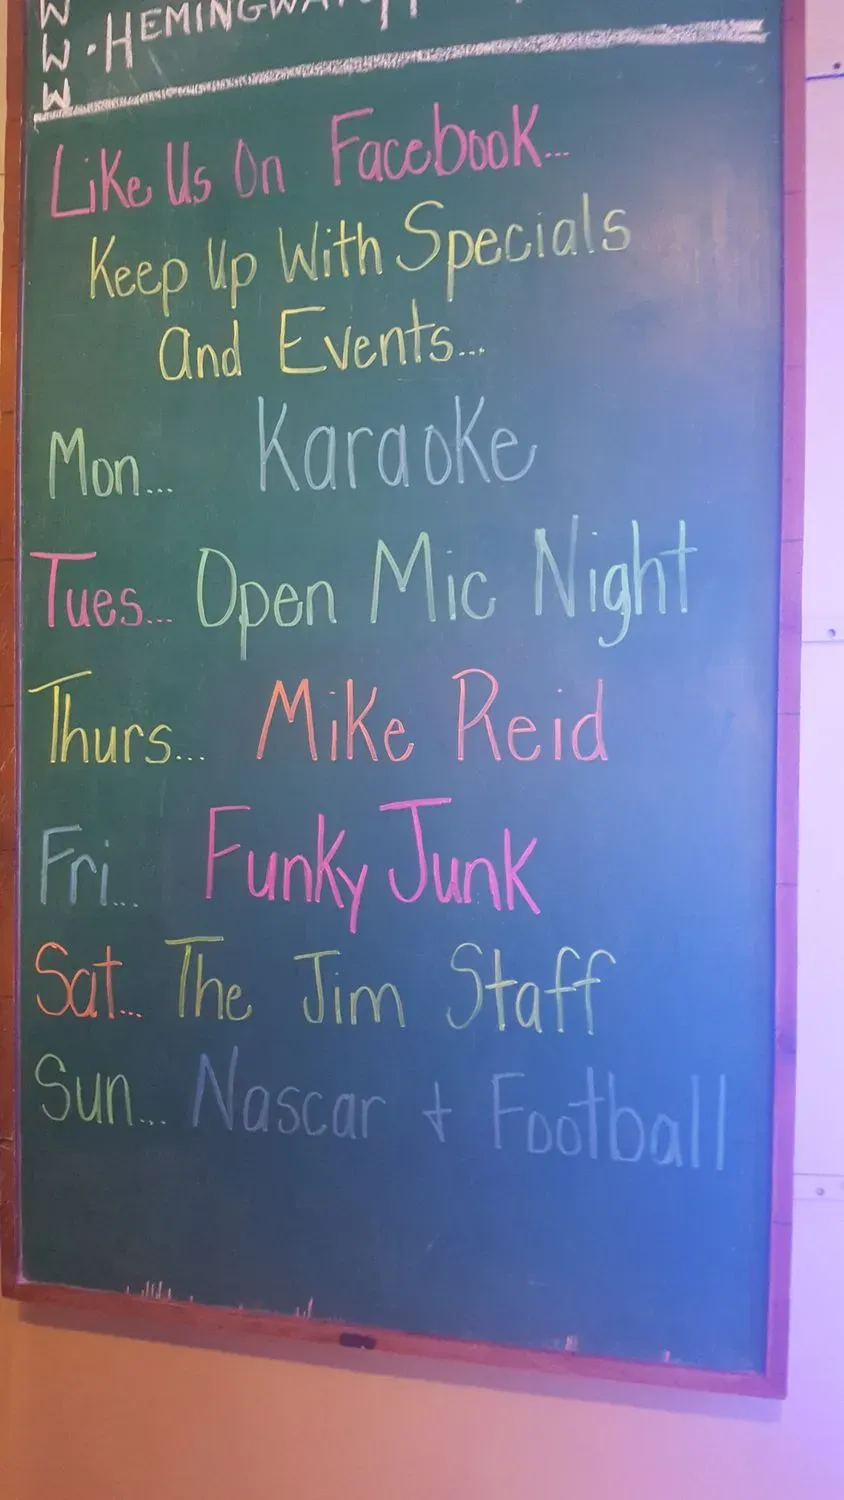 W
W
W
· HEMINGWAY
Like Us On Facebook...
Keep Up With Specials
And Events...
Mon... Karaoke
Tues... Open Mic Night
Thurs... Mike Reid
Fri... Funky Junk
Sat... The Jim Staff
Sun... Nascar + Football